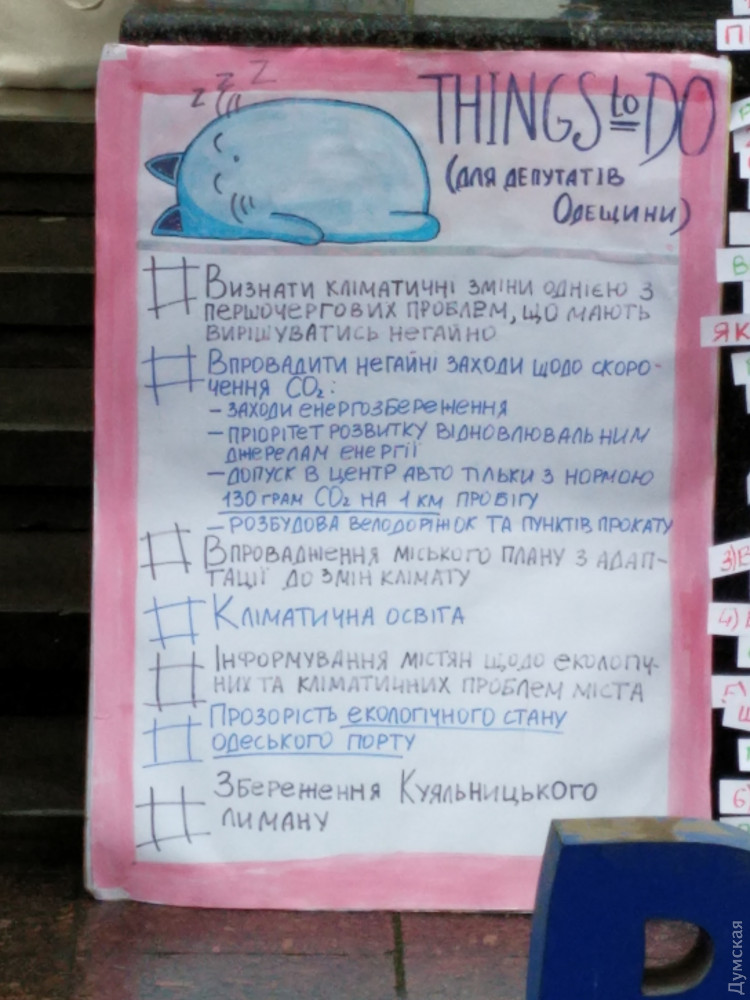 z z Z
THINGS to DO
(ДЛЯ ДЕПУТАТІВ
ОДЕЩИНИ)
# ВИЗНАТИ КЛІМАТИЧНІ ЗМІНИ ОДНІЄЮ З
ПЕРШОЧЕРГОВИХ ПРОБЛЕМ, ЩО МАЮТЬ
ВИРІШУВАТИСЬ НЕГАЙНО
# ВПРОВАДИТИ НЕГАЙНІ ЗАХОДИ ЩОДО СКОРО-
ЧЕННЯ CO₂:
- ЗАХОДИ ЕНЕРГОЗБЕРЕЖЕННЯ
- ПРІОРІТЕТ РОЗВИТКУ ВІДНОВЛЮВАЛЬНИМ
ДЖЕРЕЛАМ ЕНЕРГІЇ
- ДОПУСК В ЦЕНТР АВТО ТІЛЬКИ З НОРМОЮ
130 ГРАМ CO₂ НА 1 КМ ПРОБІГУ
- РОЗБУДОВА ВЕЛОДОРІЖОК ТА ПУНКТІВ ПРОКАТУ
# ВПРОВАДЖЕННЯ МІСЬКОГО ПЛАНУ З АДАП-
ТАЦІЇ ДО ЗМІН КЛІМАТУ
# КЛІМАТИЧНА ОСВІТА
# ІНФОРМУВАННЯ МІСТЯН ЩОДО ЕКОЛОГІЧ-
НИХ ТА КЛІМАТИЧНИХ ПРОБЛЕМ МІСТА
# ПРОЗОРІСТЬ ЕКОЛОГІЧНОГО СТАНУ
ОДЕСЬКОГО ПОРТУ
# ЗБЕРЕЖЕННЯ КУЯЛЬНИЦЬКОГО
ЛИМАНУ
П
ЯК
3)В
4)
6)
Думская